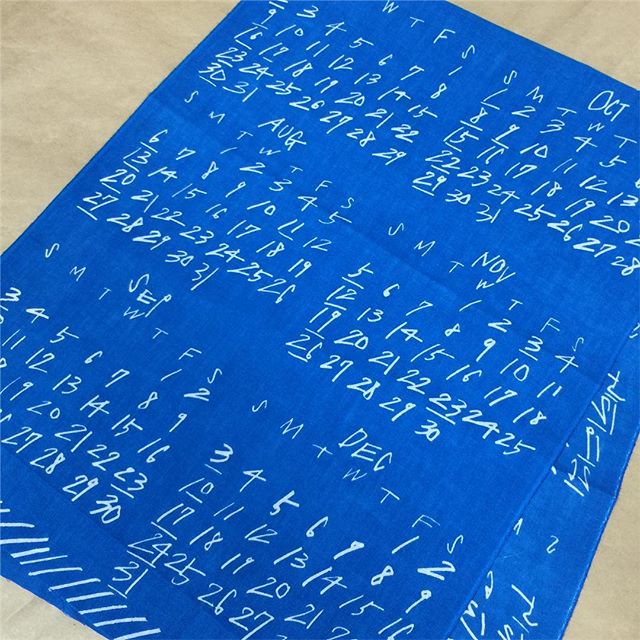 W T F S
1
3 4 5 6 7 8
9 10 11 12 13 14 15
16 17 18 19 20 21 22
23 24 25 26 27 28 29
30 31
AUG
S M T W T F S
1 2 3 4 5
6 7 8 9 10 11 12
13 14 15 16 17 18 19
20 21 22 23 24 25 26
27 28 29 30 31
SEP
S M T W T F S
1 2
3 4 5 6 7 8 9
11 12 13 14 15 16
19 20 21 22 23
27 28 29 30
OCT
S M T W T
1 2 3 4 5
8 9 10 11 12 13
15 16 17 18 19 20
22 23 24 25 26 27 28
29 30 31
NOV
S M T W T F S
1 2 3 4
5 6 7 8 9 10 11
12 13 14 15 16 17 18
19 20 21 22 23 24 25
26 27 28 29 30
DEC
S M T W T F S
1 2
3 4 5 6 7 8 9
10 11 12 13 14 15
17 18 19 20 21
24 25 26 27
31